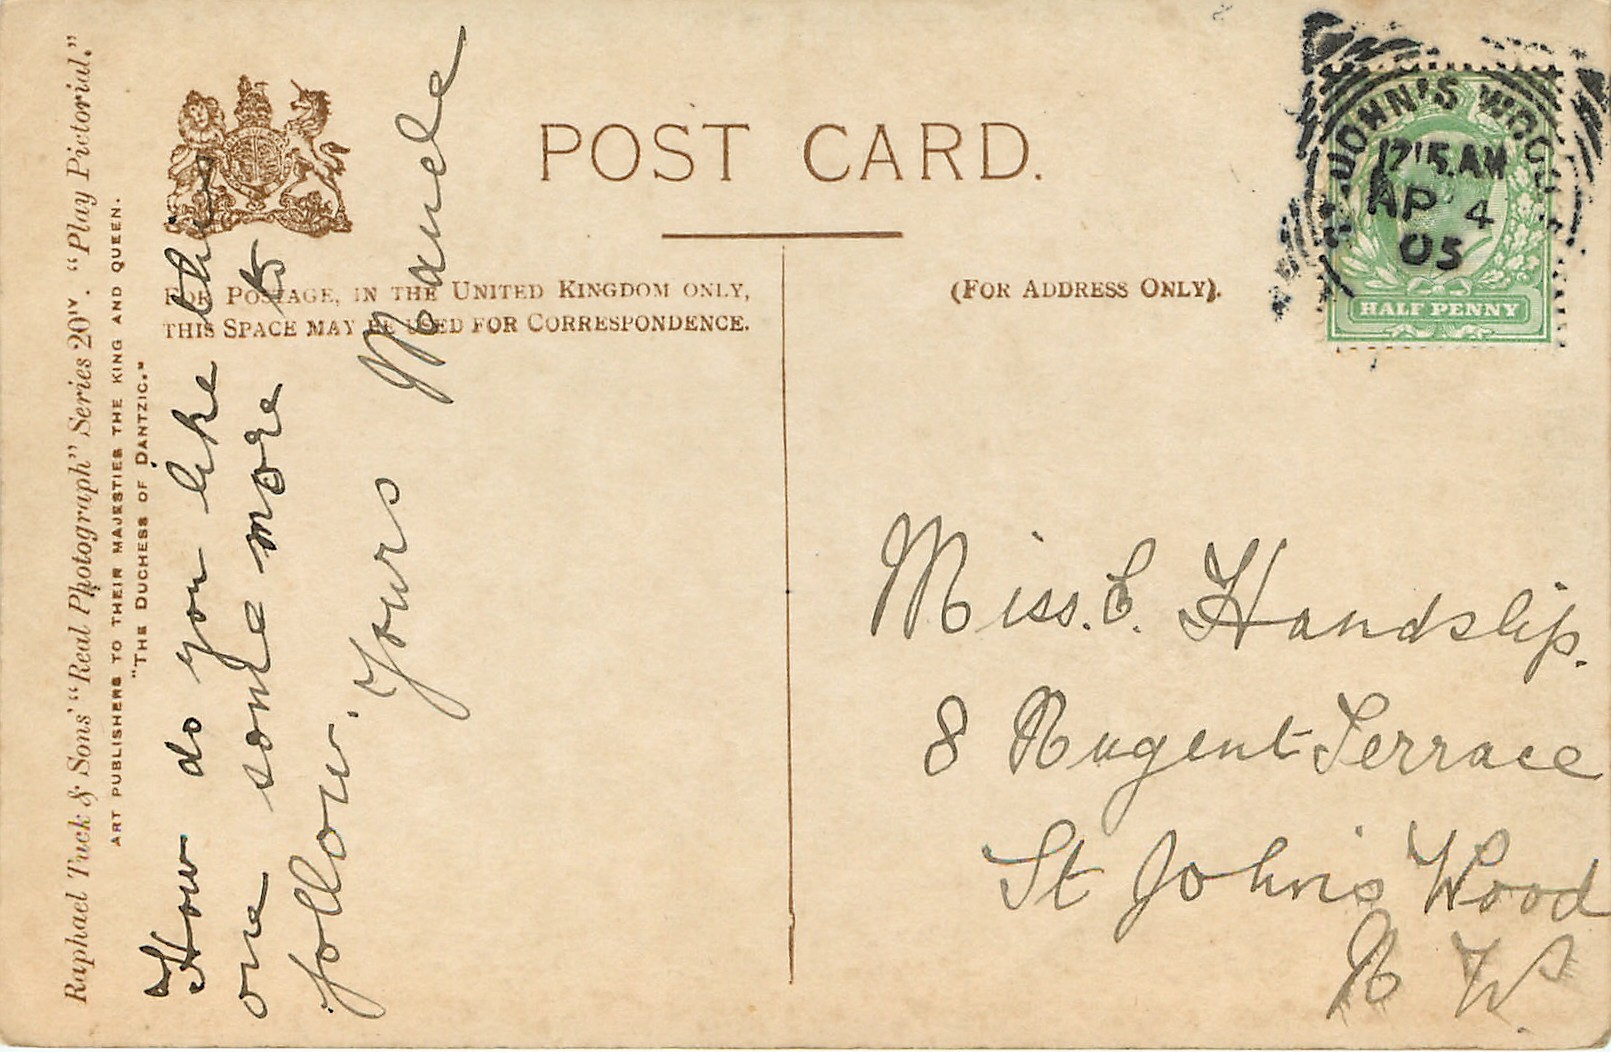 Raphael Tuck & Sons' "Real Photograph" Series 20". "Play Pictorial."
ART PUBLISHERS TO THEIR MAJESTIES THE KING AND QUEEN.
"THE DUCHESS OF DANTZIC."
POST CARD.
FOR POSTAGE, IN THE UNITED KINGDOM ONLY,
THIS SPACE MAY BE USED FOR CORRESPONDENCE.
(FOR ADDRESS ONLY).
How do you like this
one some more to
follow. Yours Maude
JOHN'S WOOD
12 15 AM
AP 4
05
HALF PENNY
Miss. E. Handslip.
8 Nugent Terrace
St John's Wood
N W.